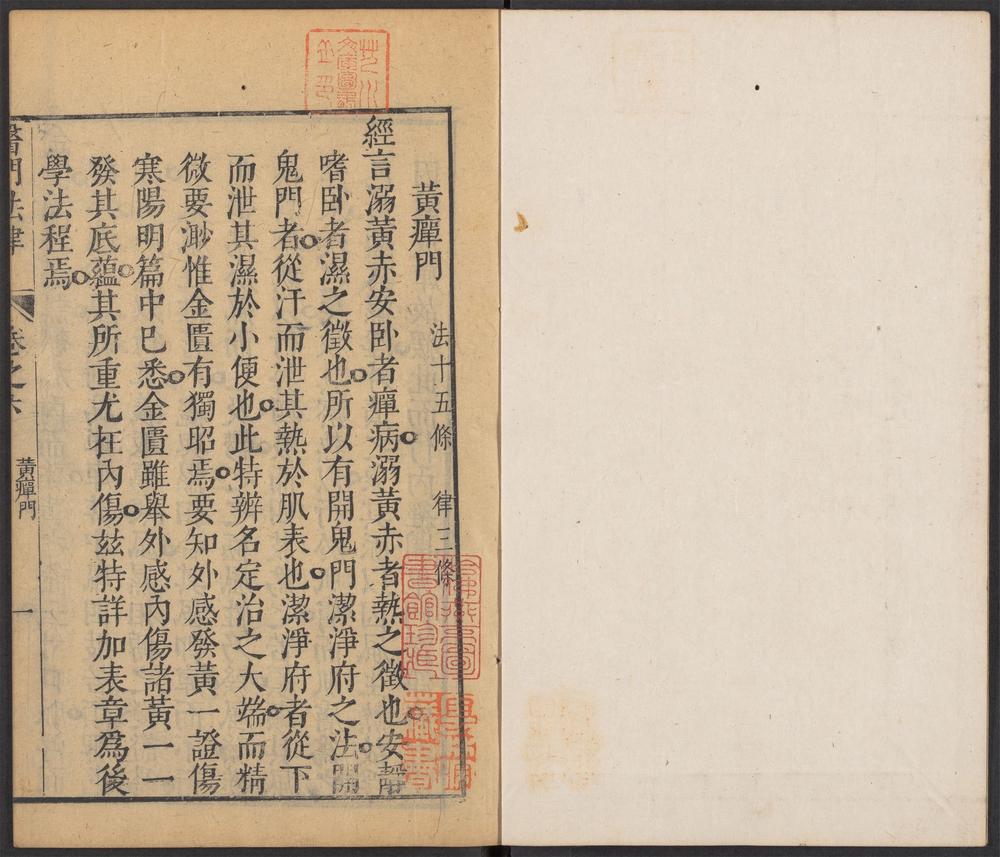 黃癉門
法十五條 律三條
經言溺黃赤安卧者癉病溺黃赤者熱之徵也安靜
嗜卧者濕之徵也所以有開鬼門潔淨府之法開
鬼門者從汗而泄其熱於肌表也潔淨府者從下
而泄其濕於小便也此特辨名定治之大端而精
微要渺惟金匱有獨昭焉要知外感發黃一證傷
寒陽明篇中已悉金匱雖舉外感內傷諸黃一一
發其底蘊其所重尤在內傷茲特詳加表章爲後
學法程焉
醫門法律
卷之六
黃癉門
一